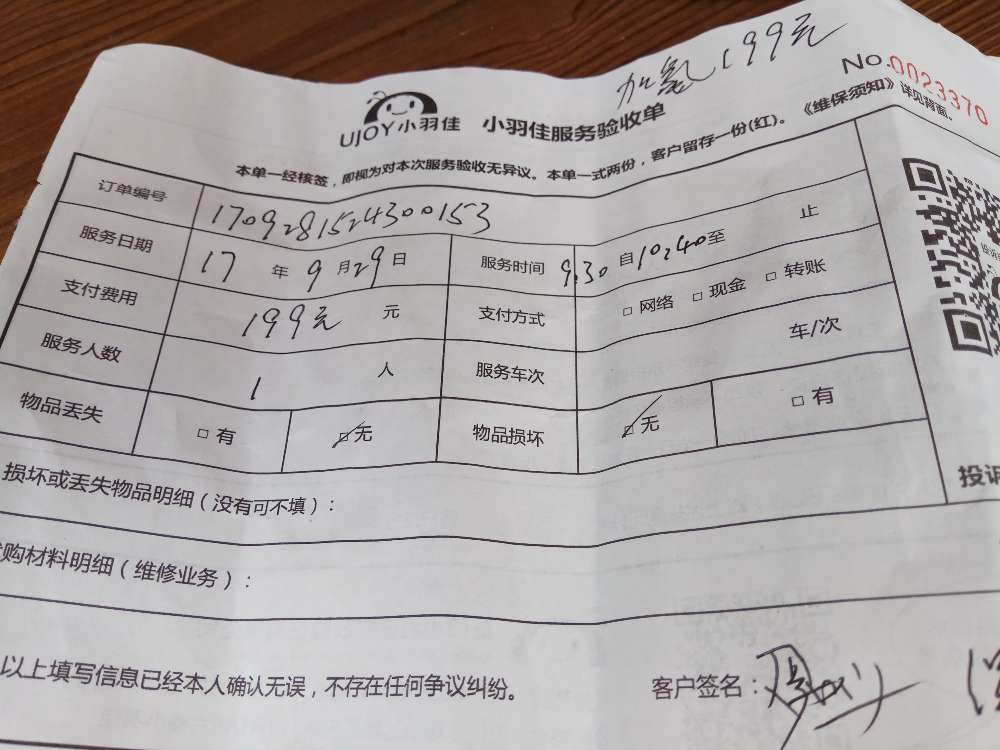 加氢199元
No.0023370
UJOY小羽佳 小羽佳服务验收单
本单一经核签，即视为对本次服务验收无异议。本单一式两份，客户留存一份(红)。《维保须知》详见背面。
订单编号 1709281524300153
服务日期 17 年 9 月 29 日 服务时间 9.30 自 10.40 至 止
支付费用 199元 元 支付方式 □ 网络 □ 现金 □ 转账
服务人数 1 人 服务车次 车/次
物品丢失 □ 有 □ 无 物品损坏 □ 无 □ 有
投诉
损坏或丢失物品明细（没有可不填）：
购材料明细（维修业务）：
以上填写信息已经本人确认无误，不存在任何争议纠纷。 客户签名：